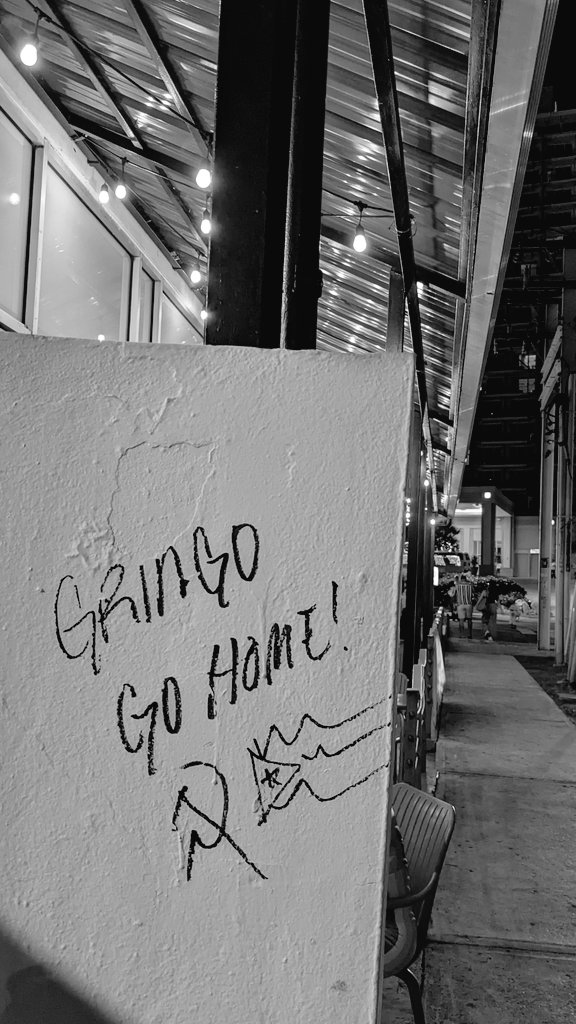 GRINGO
GO HOME!